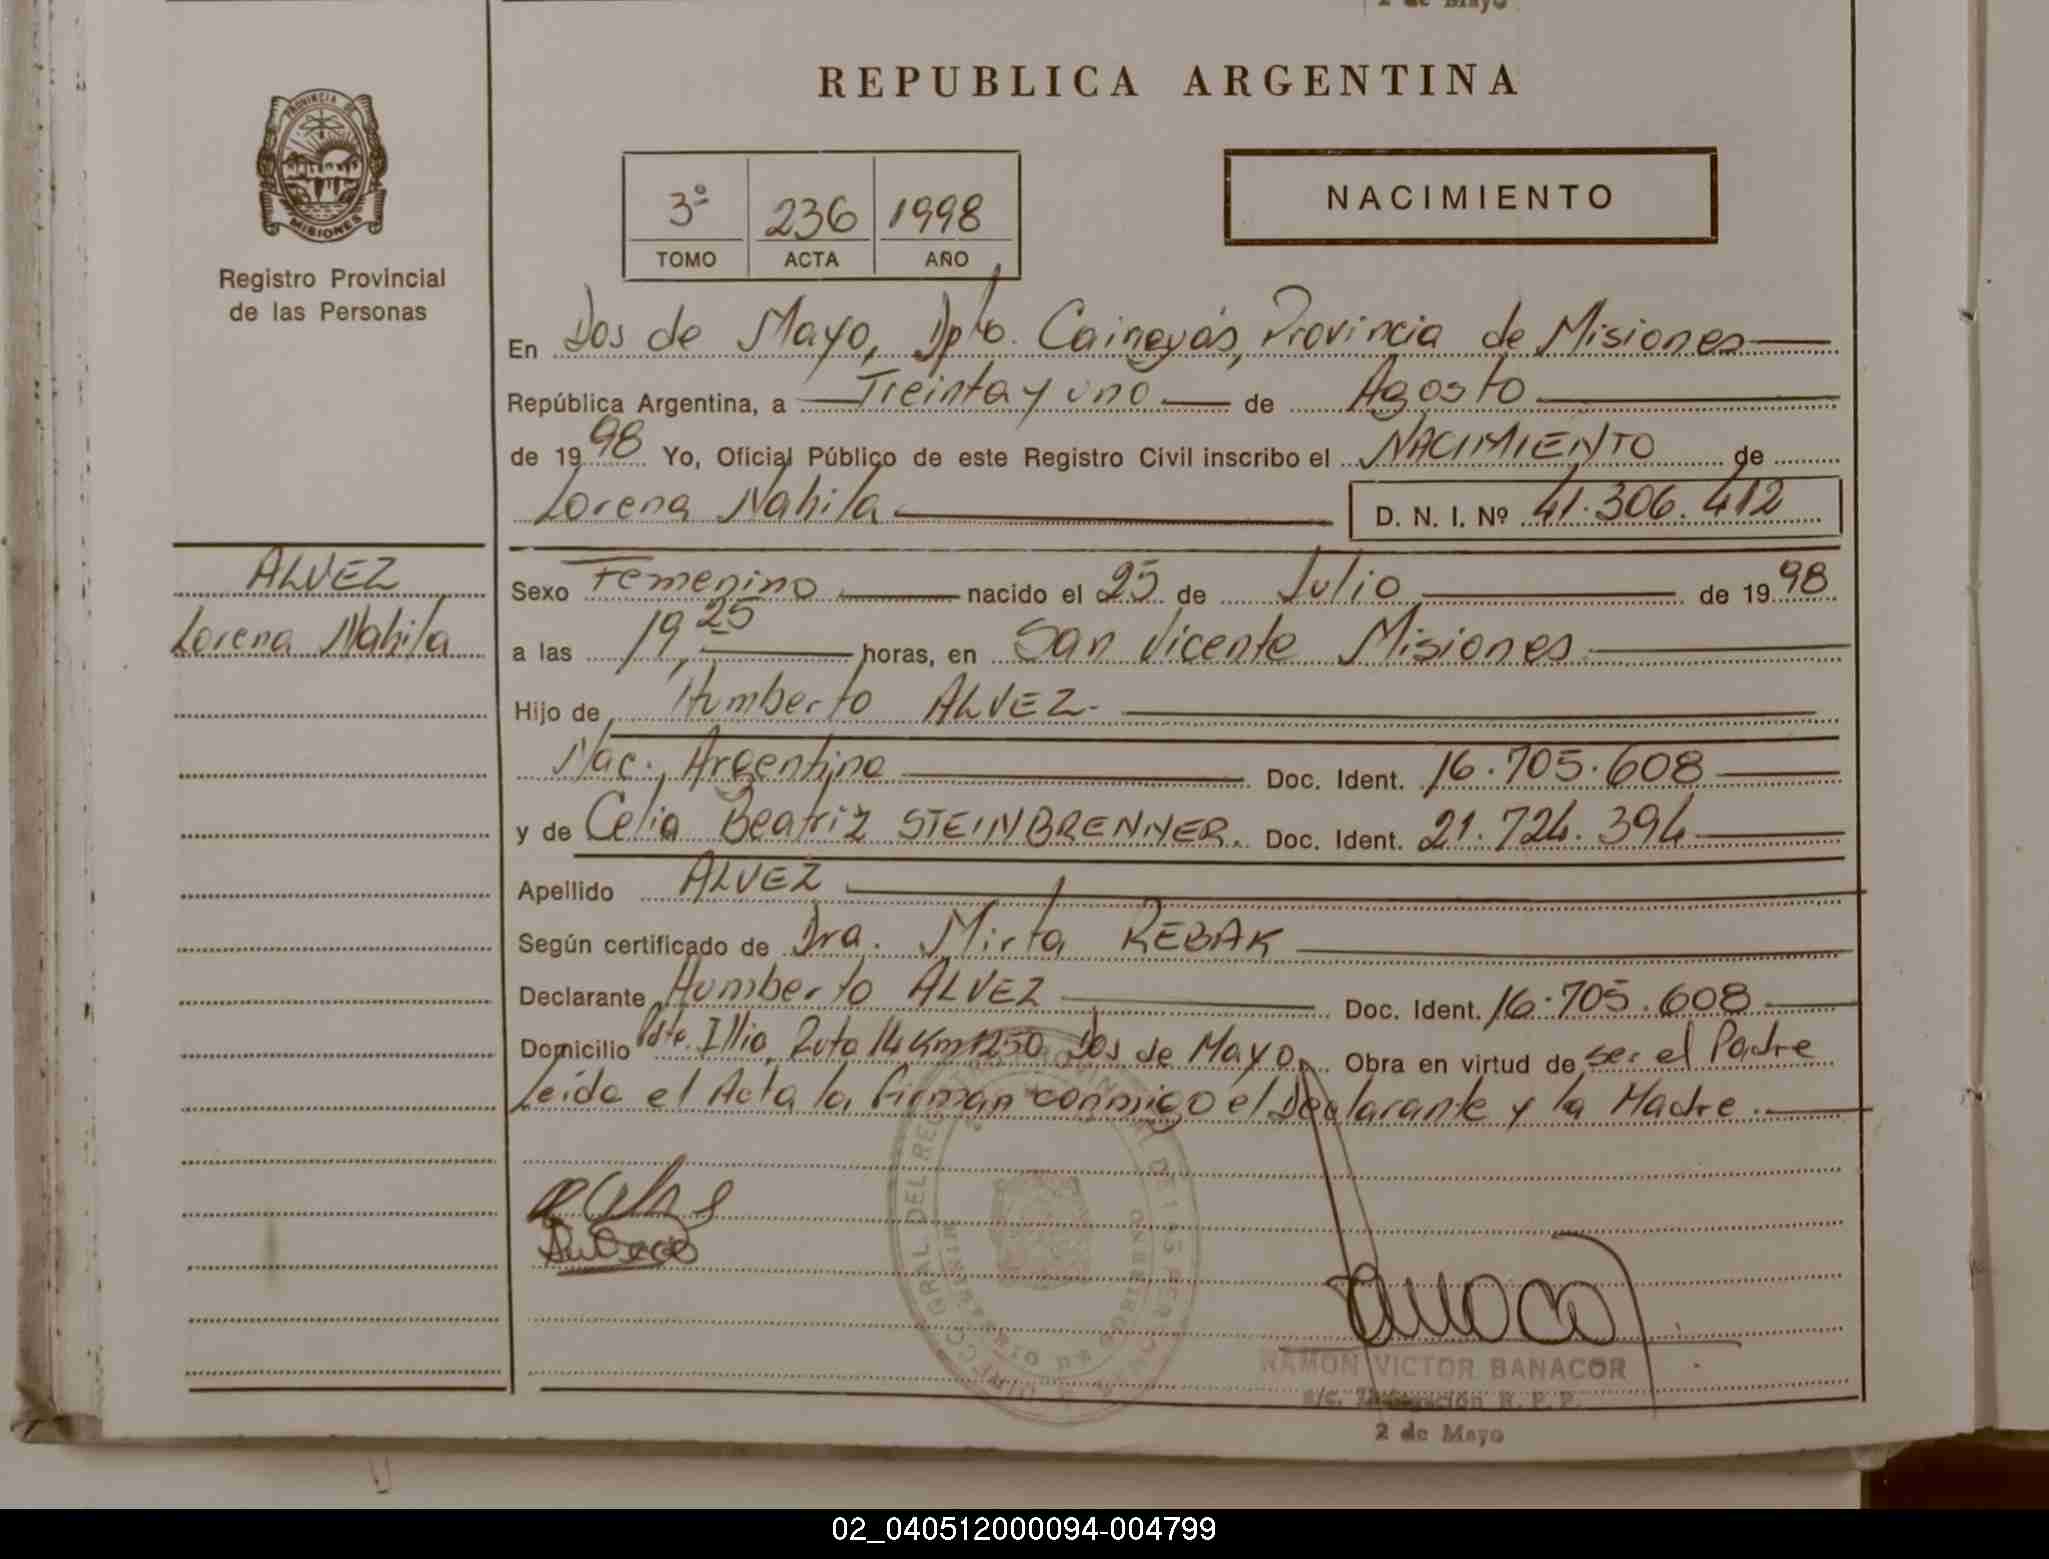 2 de Mayo
REPUBLICA ARGENTINA
PROVINCIA DE
MISIONES
Registro Provincial
de las Personas
NACIMIENTO
3º 236 1998
TOMO ACTA AÑO
En Dos de Mayo, Dpto. Cainguás, Provincia de Misiones
República Argentina, a Treinta y uno de Agosto
de 1998 Yo, Oficial Público de este Registro Civil inscribo el NACIMIENTO de
Lorena Nahila D. N. I. Nº 41.306.412
ALVEZ
Lorena Nahila
Sexo Femenino nacido el 25 de Julio de 1998
a las 19,25 horas, en San Vicente Misiones
Hijo de Humberto ALVEZ.
Nac. Argentina Doc. Ident. 16.705.608
y de Celia Beatriz STEINBRENNER. Doc. Ident. 21.724.394
Apellido ALVEZ
Según certificado de Dra. Mirta REBAK
Declarante Humberto ALVEZ Doc. Ident. 16.705.608
Domicilio Pdte. Illia, Ruta 14 Km 1250 Dos de Mayo, Obra en virtud de ser el Padre
Leída el Acta la firman conmigo el Declarante y la Madre.
RAMON VICTOR BANACOR
R. P. P.
2 de Mayo
02_040512000094-004799